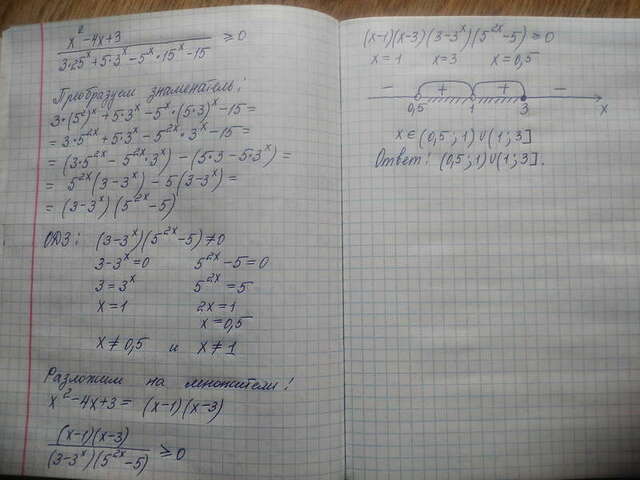 x² - 4x + 3
3·25ˣ + 5·3ˣ - 5ˣ·15ˣ - 15 ≥ 0
Преобразуем знаменатель:
3·(5²)ˣ + 5·3ˣ - 5ˣ·(5·3)ˣ - 15 =
= 3·5²ˣ + 5·3ˣ - 5²ˣ·3ˣ - 15 =
= (3·5²ˣ - 5²ˣ·3ˣ) - (5·3 - 5·3ˣ) =
= 5²ˣ(3 - 3ˣ) - 5(3 - 3ˣ) =
= (3 - 3ˣ)(5²ˣ - 5)
ОДЗ: (3 - 3ˣ)(5²ˣ - 5) ≠ 0
3 - 3ˣ = 0 5²ˣ - 5 = 0
3 = 3ˣ 5²ˣ = 5
x = 1 2x = 1
x = 0,5
x ≠ 0,5 и x ≠ 1
Разложим на множители:
x² - 4x + 3 = (x - 1)(x - 3)
(x - 1)(x - 3)
(3 - 3ˣ)(5²ˣ - 5) ≥ 0
(x - 1)(x - 3)(3 - 3ˣ)(5²ˣ - 5) = 0
x = 1 x = 3 x = 0,5
- + + -
0,5 1 3 x
x ∈ (0,5; 1) ∪ (1; 3]
Ответ: (0,5; 1) ∪ (1; 3].